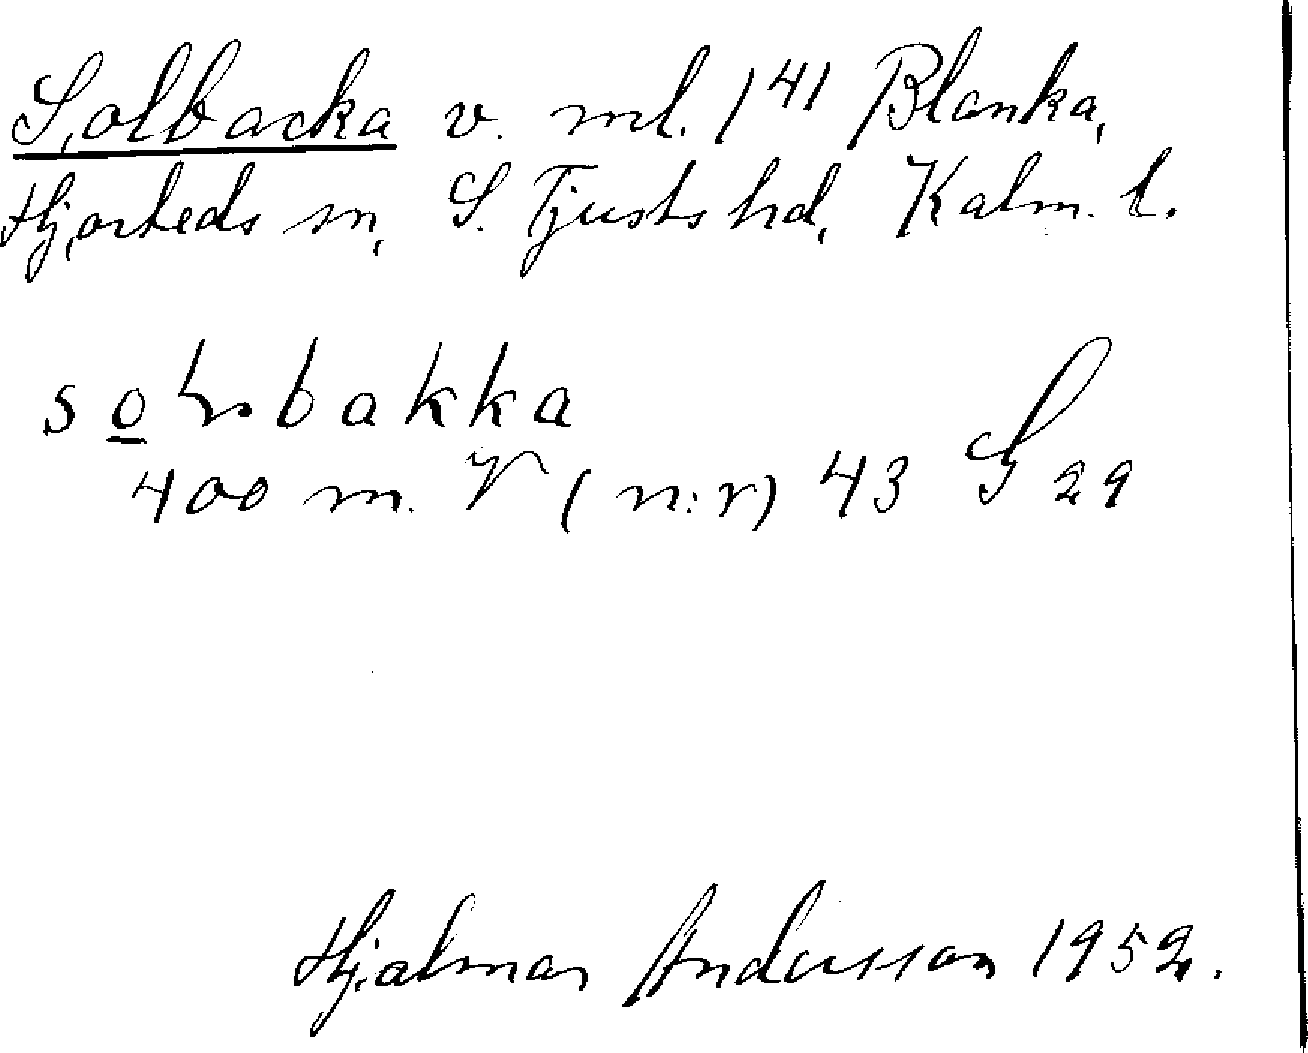 Solbacka v. ml. 1⁴¹ Blanka,
Hjorteds sn, S. Tjusts hd, Kalm. l.
400 m. V (n:r) 43 S 29
Hjalmar Andersson 1952.